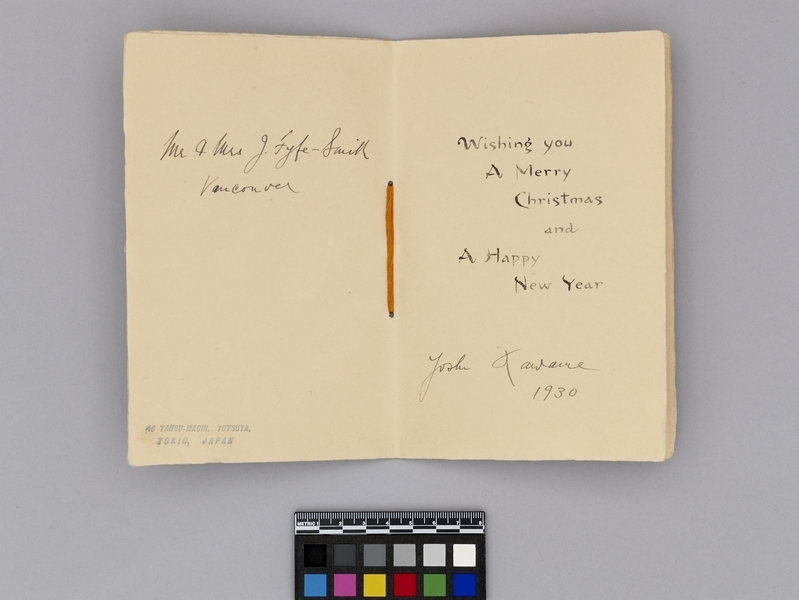 Mr & Mrs J. Fyfe-Smith
Vancouver
Wishing you
A Merry
Christmas
and
A Happy
New Year
Yoshi
1930
YOTSUYA,
TOKIO, JAPAN
METRIC 1 2 3 4 5 6 7 8